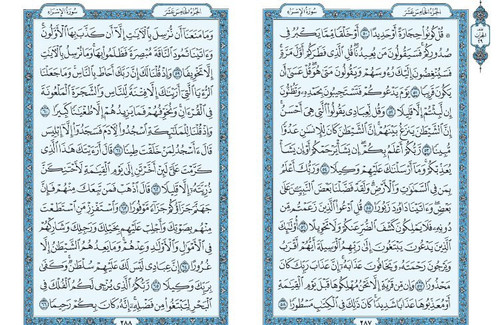 الجُزْءُ الخَامِسَ عَشَرَ سُورَةُ الإِسْرَاءِ
۞ قُلْ كُونُوا۟ حِجَارَةً أَوْ حَدِيدًا ٥٠ أَوْ خَلْقًا مِّمَّا يَكْبُرُ فِى
صُدُورِكُمْ فَسَيَقُولُونَ مَن يُعِيدُنَا قُلِ ٱلَّذِى فَطَرَكُمْ أَوَّلَ مَرَّةٍ
فَسَيُنْغِضُونَ إِلَيْكَ رُءُوسَهُمْ وَيَقُولُونَ مَتَىٰ هُوَ قُلْ عَسَىٰٓ أَن
يَكُونَ قَرِيبًا ٥١ يَوْمَ يَدْعُوكُمْ فَتَسْتَجِيبُونَ بِحَمْدِهِۦ وَتَظُنُّونَ
إِن لَّبِثْتُمْ إِلَّا قَلِيلًا ٥٢ وَقُل لِّعِبَادِى يَقُولُوا۟ ٱلَّتِى هِىَ أَحْسَنُ
إِنَّ ٱلشَّيْطَٰنَ يَنزَغُ بَيْنَهُمْ إِنَّ ٱلشَّيْطَٰنَ كَانَ لِلْإِنسَٰنِ عَدُوًّا
مُّبِينًا ٥٣ رَّبُّكُمْ أَعْلَمُ بِكُمْ إِن يَشَأْ يَرْحَمْكُمْ أَوْ إِن يَشَأْ
يُعَذِّبْكُمْ وَمَآ أَرْسَلْنَٰكَ عَلَيْهِمْ وَكِيلًا ٥٤ وَرَبُّكَ أَعْلَمُ
بِمَن فِى ٱلسَّمَٰوَٰتِ وَٱلْأَرْضِ وَلَقَدْ فَضَّلْنَا بَعْضَ ٱلنَّبِيِّـۧنَ عَلَىٰ
بَعْضٍ وَءَاتَيْنَا دَاوُۥدَ زَبُورًا ٥٥ قُلِ ٱدْعُوا۟ ٱلَّذِينَ زَعَمْتُم مِّن
دُونِهِۦ فَلَا يَمْلِكُونَ كَشْفَ ٱلضُّرِّ عَنكُمْ وَلَا تَحْوِيلًا ٥٦ أُو۟لَٰٓئِكَ
ٱلَّذِينَ يَدْعُونَ يَبْتَغُونَ إِلَىٰ رَبِّهِمُ ٱلْوَسِيلَةَ أَيُّهُمْ أَقْرَبُ
وَيَرْجُونَ رَحْمَتَهُۥ وَيَخَافُونَ عَذَابَهُۥٓ إِنَّ عَذَابَ رَبِّكَ كَانَ
مَحْذُورًا ٥٧ وَإِن مِّن قَرْيَةٍ إِلَّا نَحْنُ مُهْلِكُوهَا قَبْلَ يَوْمِ ٱلْقِيَٰمَةِ
أَوْ مُعَذِّبُوهَا عَذَابًا شَدِيدًا كَانَ ذَٰلِكَ فِى ٱلْكِتَٰبِ مَسْطُورًا ٥٨
٢٨٧
الجُزْءُ الخَامِسَ عَشَرَ سُورَةُ الإِسْرَاءِ
وَمَا مَنَعَنَآ أَن نُّرْسِلَ بِٱلْءَايَٰتِ إِلَّآ أَن كَذَّبَ بِهَا ٱلْأَوَّلُونَ
وَءَاتَيْنَا ثَمُودَ ٱلنَّاقَةَ مُبْصِرَةً فَظَلَمُوا۟ بِهَا وَمَا نُرْسِلُ بِٱلْءَايَٰتِ
إِلَّا تَخْوِيفًا ٥٩ وَإِذْ قُلْنَا لَكَ إِنَّ رَبَّكَ أَحَاطَ بِٱلنَّاسِ وَمَا جَعَلْنَا
ٱلرُّءْيَا ٱلَّتِىٓ أَرَيْنَٰكَ إِلَّا فِتْنَةً لِّلنَّاسِ وَٱلشَّجَرَةَ ٱلْمَلْعُونَةَ
فِى ٱلْقُرْءَانِ وَنُخَوِّفُهُمْ فَمَا يَزِيدُهُمْ إِلَّا طُغْيَٰنًا كَبِيرًا ٦٠
وَإِذْ قُلْنَا لِلْمَلَٰٓئِكَةِ ٱسْجُدُوا۟ لِءَادَمَ فَسَجَدُوٓا۟ إِلَّآ إِبْلِيسَ
قَالَ ءَأَسْجُدُ لِمَنْ خَلَقْتَ طِينًا ٦١ قَالَ أَرَءَيْتَكَ هَٰذَا ٱلَّذِى
كَرَّمْتَ عَلَىَّ لَئِنْ أَخَّرْتَنِ إِلَىٰ يَوْمِ ٱلْقِيَٰمَةِ لَأَحْتَنِكَنَّ
ذُرِّيَّتَهُۥٓ إِلَّا قَلِيلًا ٦٢ قَالَ ٱذْهَبْ فَمَن تَبِعَكَ مِنْهُمْ فَإِنَّ
جَهَنَّمَ جَزَآؤُكُمْ جَزَآءً مَّوْفُورًا ٦٣ وَٱسْتَفْزِزْ مَنِ ٱسْتَطَعْتَ
مِنْهُم بِصَوْتِكَ وَأَجْلِبْ عَلَيْهِم بِخَيْلِكَ وَرَجِلِكَ وَشَارِكْهُمْ
فِى ٱلْأَمْوَٰلِ وَٱلْأَوْلَٰدِ وَعِدْهُمْ وَمَا يَعِدُهُمُ ٱلشَّيْطَٰنُ إِلَّا
غُرُورًا ٦٤ إِنَّ عِبَادِى لَيْسَ لَكَ عَلَيْهِمْ سُلْطَٰنٌ وَكَفَىٰ بِرَبِّكَ
وَكِيلًا ٦٥ رَّبُّكُمُ ٱلَّذِى يُزْجِى لَكُمُ ٱلْفُلْكَ فِى
ٱلْبَحْرِ لِتَبْتَغُوا۟ مِن فَضْلِهِۦٓ إِنَّهُۥ كَانَ بِكُمْ رَحِيمًا ٦٦
٢٨٨